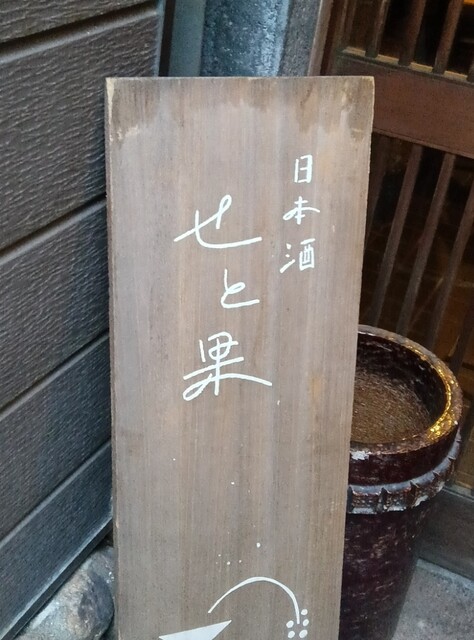 日本酒
せと果